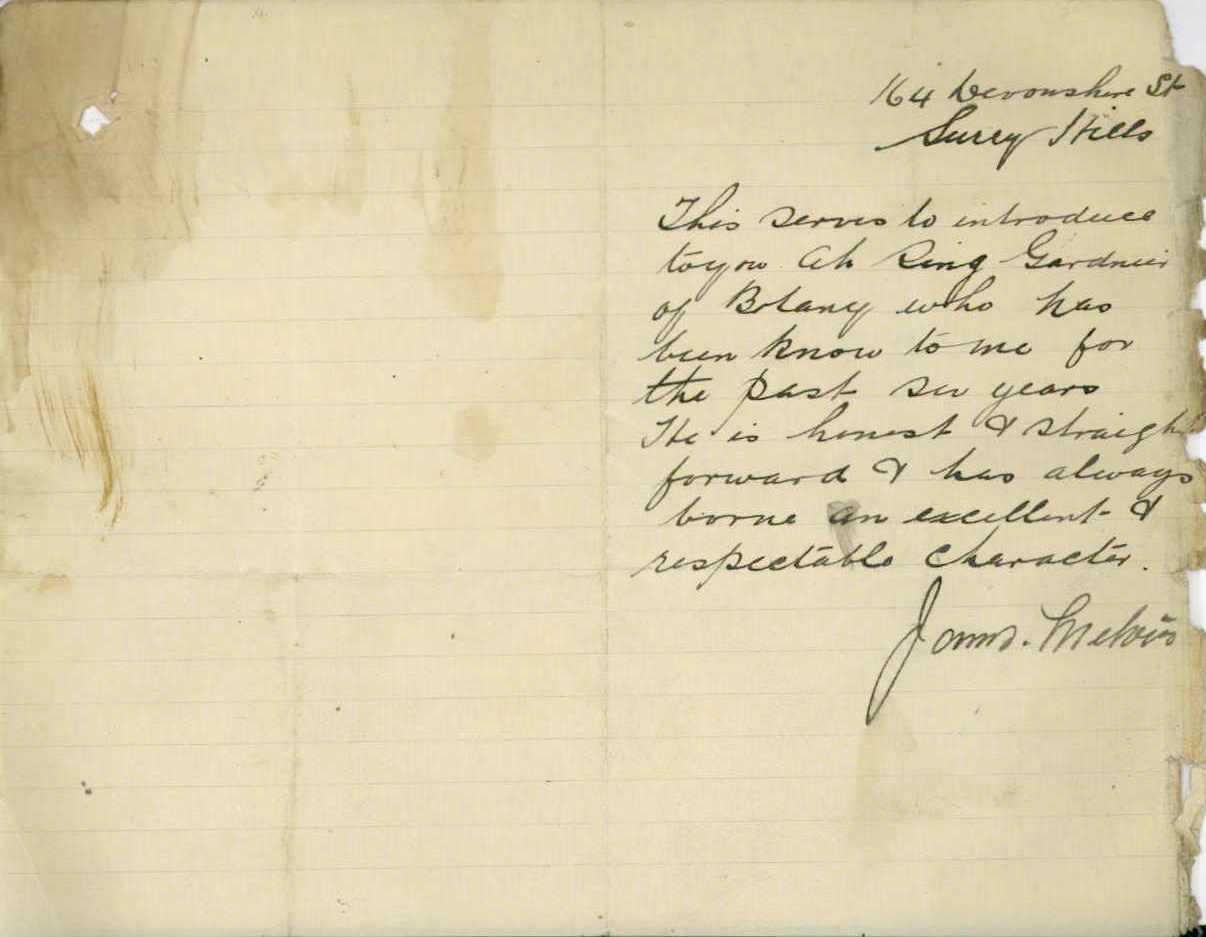 164 Devonshire St
Surry Hills
This serves to introduce
to you Ah King Gardner
of Botany who has
been know to me for
the past six years
He is honest & straight
forward & has always
borne an excellent &
respectable character.
Melvin